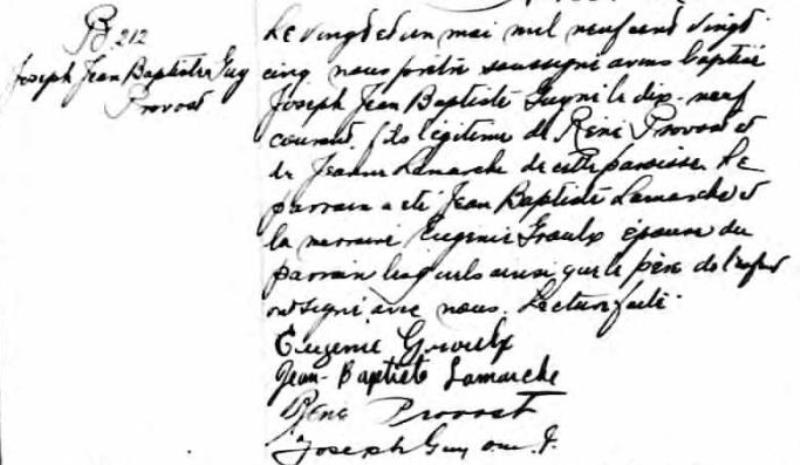 B. 212
Joseph Jean Baptiste Guy
Provost
Le vingt et un mai mil neuf cent vingt
cinq nous prêtre soussigné avons baptisé
Joseph Jean Baptiste Guy né le dix-neuf
courant, fils légitime de René Provost et
de Jeanne Lamarche de cette paroisse. Le
parrain a été Jean Baptiste Lamarche et
la marraine Eugenie Groulx épouse du
parrain lesquels ainsi que le père de l'enfant
ont signé avec nous. Lecture faite.
Eugenie Groulx
Jean-Baptiste Lamarche
René Provost
Joseph Guy